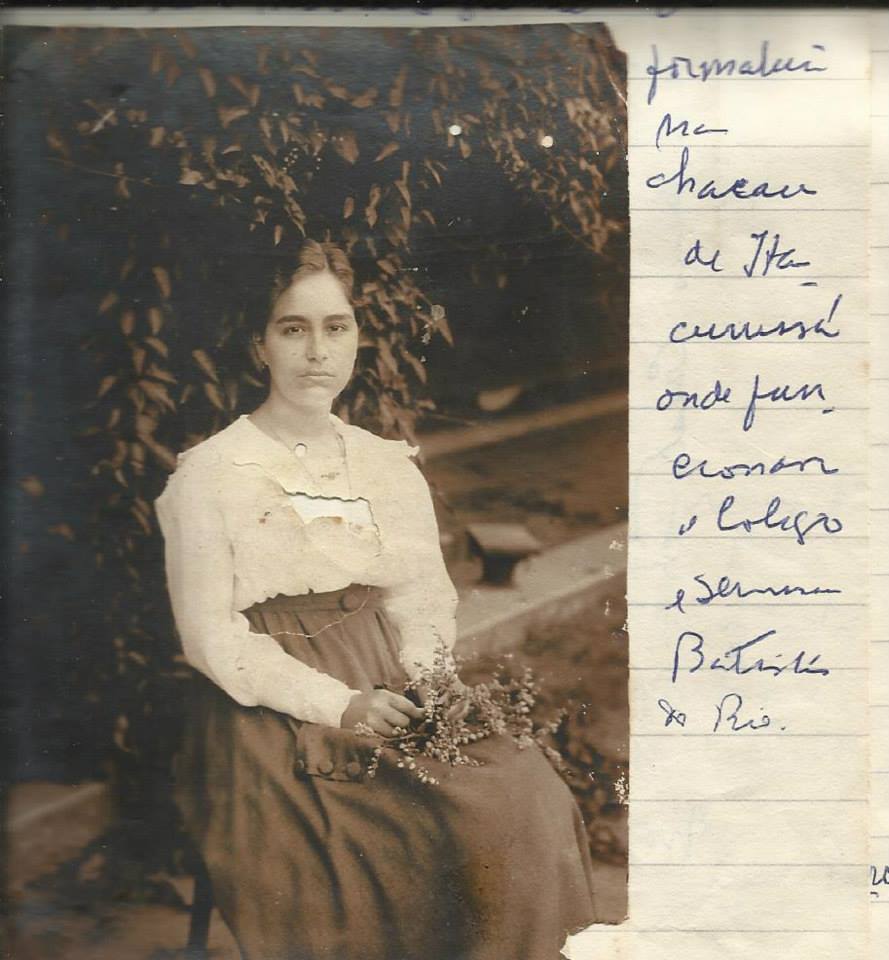 na
chacara
de Ita-
curussá
onde fun-
cionou
o Colegio
e Seminario
Batistas
do Rio.